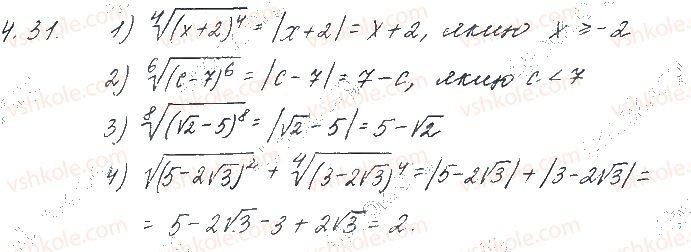 4.31. 1) ⁴√(x+2)⁴ = |x+2| = x+2, якщо x ≥ -2
2) ⁶√(c-7)⁶ = |c-7| = 7-c, якщо c < 7
3) ⁸√(√2-5)⁸ = |√2-5| = 5-√2
4) √(5-2√3)² + ⁴√(3-2√3)⁴ = |5-2√3| + |3-2√3| =
= 5-2√3-3+2√3 = 2.